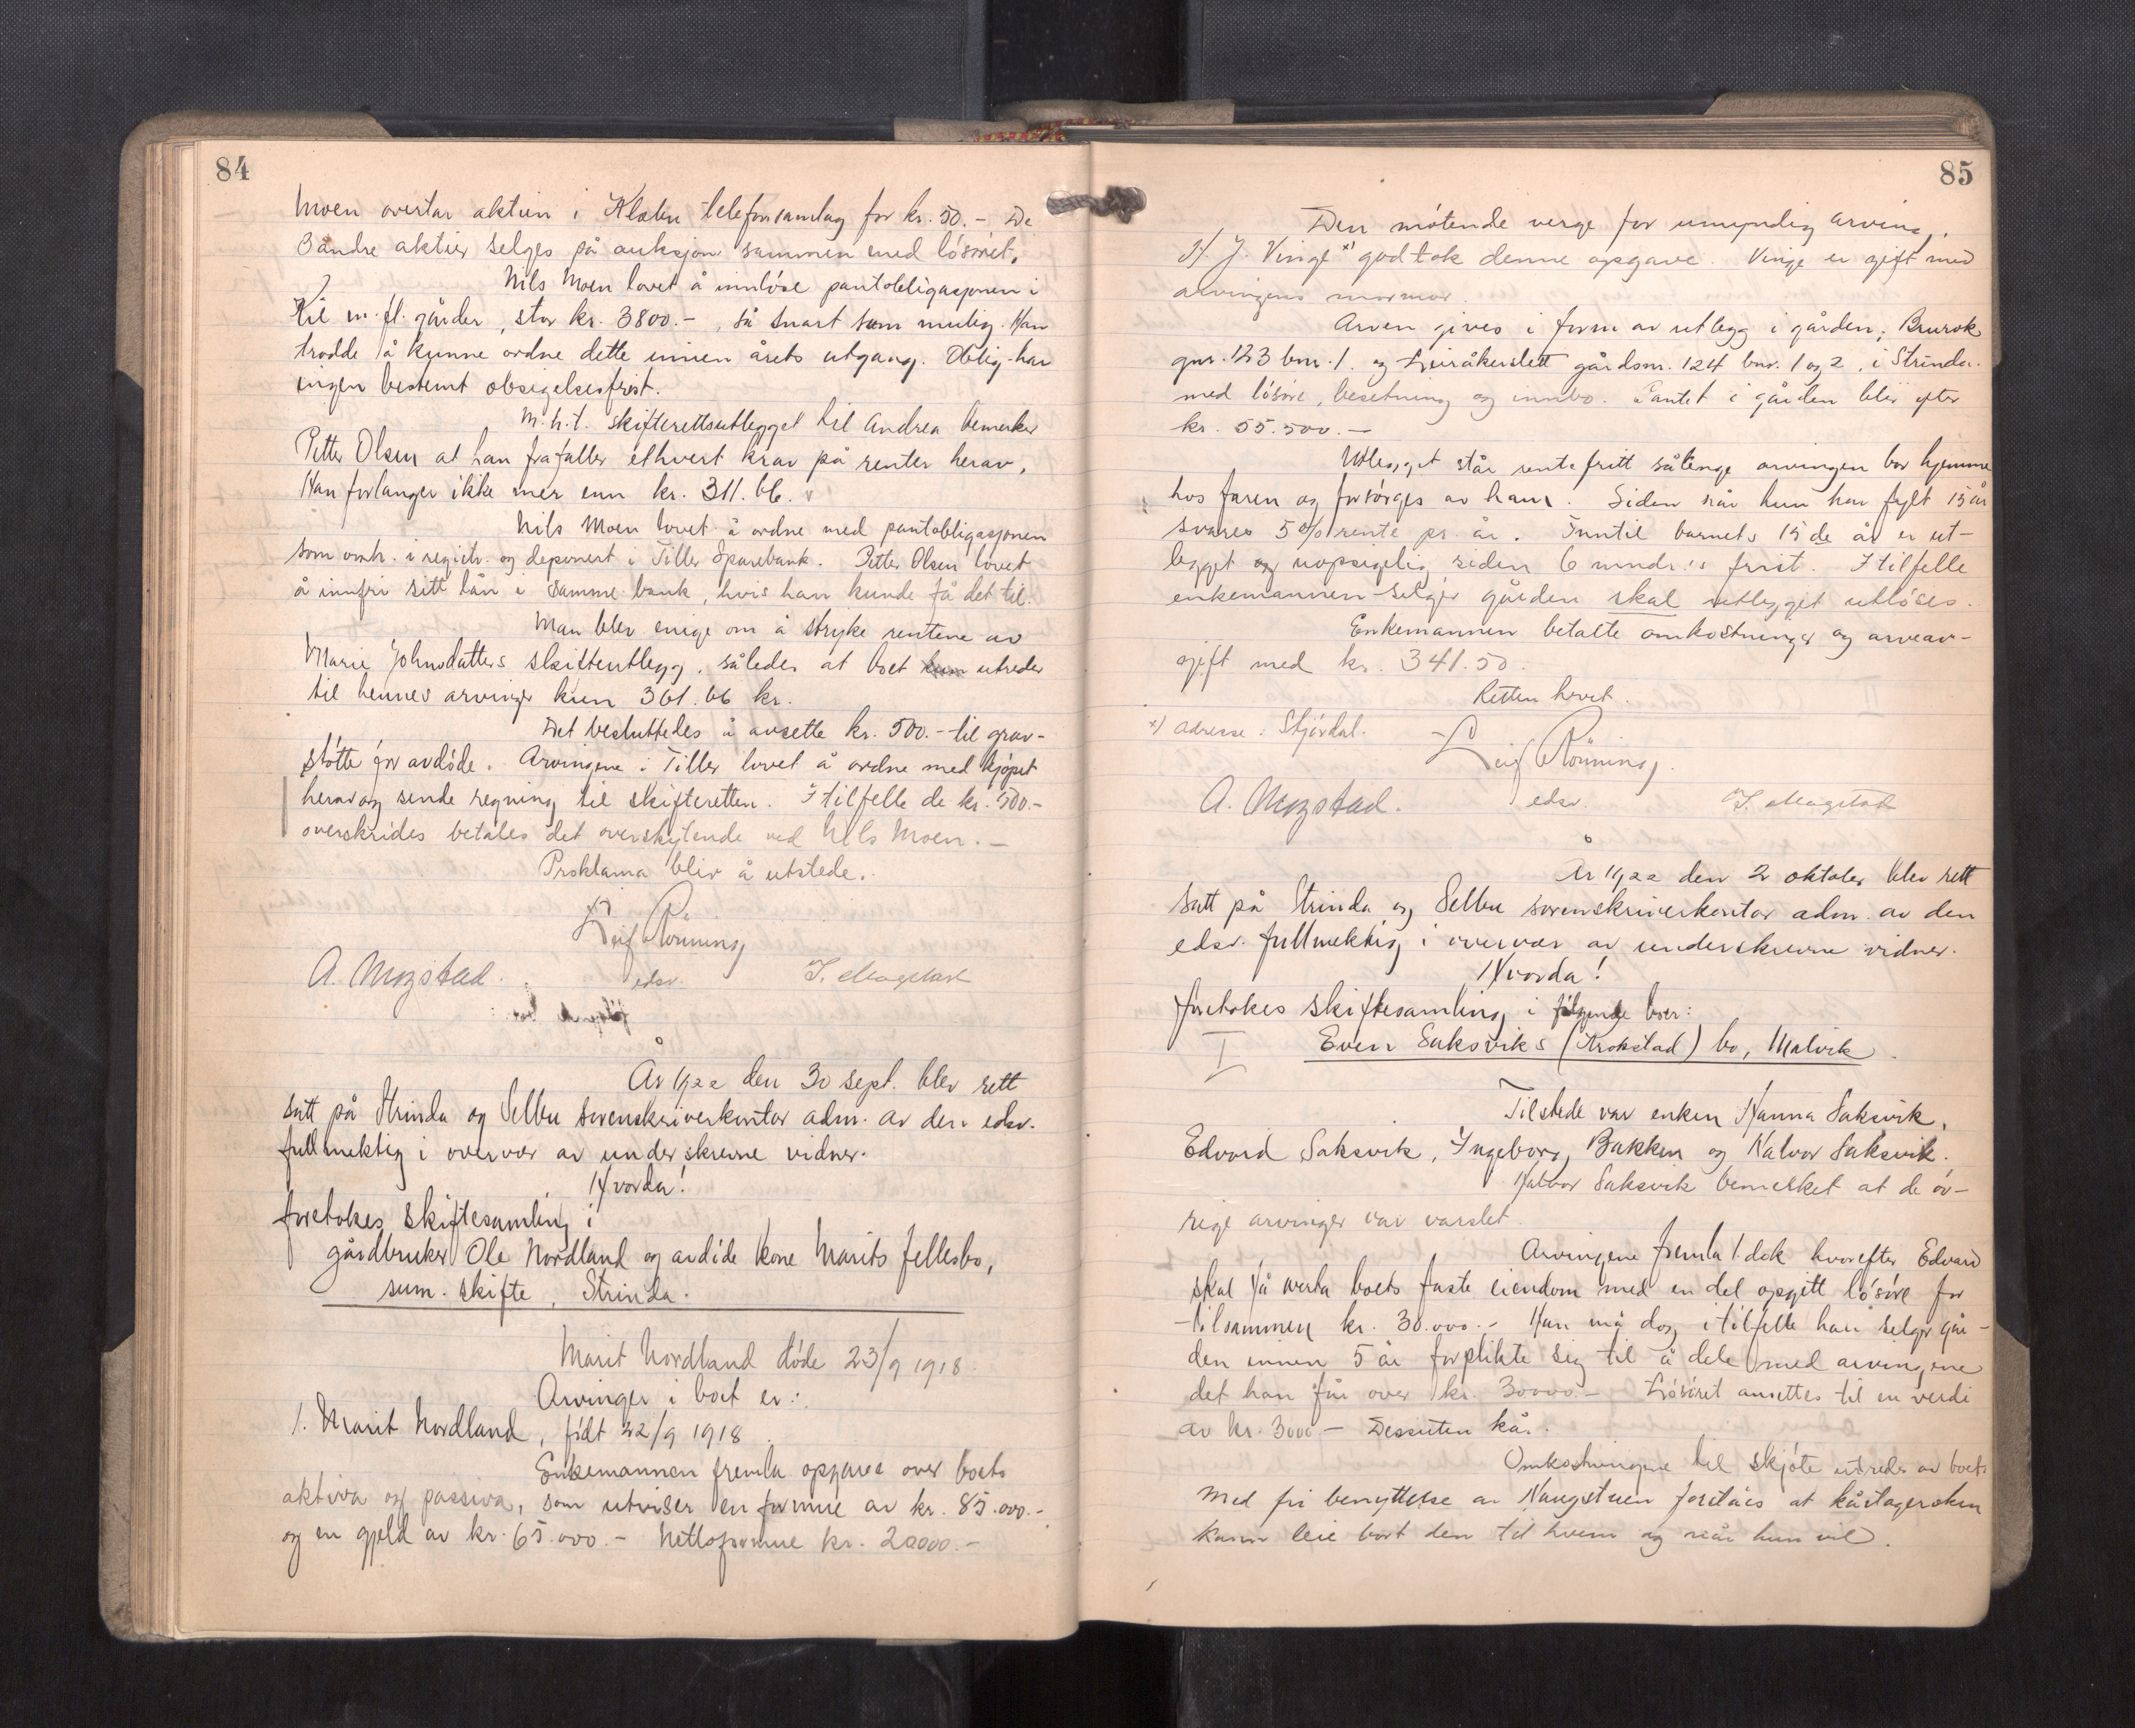 84
Moen overtar aktien i Klæbu telefonsamlag for kr. 50.- De
3 andre aktier selges på auksjon sammen med løsøret.
Nils Moen lovet å innløse pantobligasjonen i
Kil m. fl. gårder, stor kr. 3800.-, så snart som mulig. Han
trodde å kunne ordne dette innen årets utgang. Oblig. har
ingen bestemt obsigelsesfrist.
M. h. t. skifterettsutlegget til Andrea bemerker
Petter Olsen at han frafaller ethvert krav på renter herav,
Han forlanger ikke mer enn kr. 311.66.
Nils Moen lovet å ordne med pantobligasjonen
som omh. i registr. og deponert i Tiller Sparebank. Petter Olsen lovet
å innfri sitt lån i samme bank, hvis han kunde få det til.
Man blev enige om å stryke rentene av
Marie Johnsdatters skifteutlegg, således at boet kun utreder
til hennes arvinger kun 361.66 kr.
Det besluttedes å avsette kr. 500.- til grav-
støtte for avdøde. Arvingene i Tiller lovet å ordne med kjøpet
herav og sende regning til skifteretten. I tilfelle de kr. 500.-
overskrides betales det overskytende ved Nils Moen.-
Proklama blir å utstede.
Leif Rønning
edsv.
A. Mozstad.
År 1922 den 30 sept. blev rett
satt på Strinda og Selbu sorenskriverkontor adm. av den edsv.
fullmektig i overvær av underskrevne vidner.
Hvorda!
foretokes skiftesamling i
gårdbruker Ole Nordland og avdøde kone Marits fellesbo,
sum. skifte, Strinda.
Marit Nordland døde 23/9 1918
Arvinger i boet er:
1. Marit Nordland, født 22/9 1918
Enkemannen fremla opgave over boets
aktiva og passiva, som utviser en formue av kr. 85.000.-
og en gjeld av kr. 65.000.- Nettoformue kr. 20000.-
85
Den møtende verge for umyndig arving,
J. Vinge x) godtok denne opgave. Vinge er gift med
arvingens mormor.
Arven gives i form av utlegg i gården,
gnr. 123 bnr. 1. og Leiråkerslett gårdsnr. 124 bnr. 1 og 2, i Strinda
med løsøre, besetning og innbo. Pantet i gården blir efter
kr. 55.500.-
Utlegget står rentefritt sålenge arvingen bor hjemme
hos faren og forsørges av ham. Siden når hun har fylt 15 år
svares 5% rente pr. år. Inntil barnets 15 de år er ut-
legget og uopsigelig siden 6 mndr.'s frist. I tilfelle
enkemannen selger gården skal utlegget utløses.
Enkemannen betalte omkostninger og arveav-
gift med kr. 341.50.
Retten hevet.
x) adresse: Stjørdal.
Leif Rønning.
edsv.
A. Mozstad.
År 1922 den 2 oktober blev rett
satt på Strinda og Selbu sorenskriverkontor adm. av den
edsv. fullmektig i overvær av underskrevne vidner.
Hvorda!
foretokes skiftesamling i følgende boer:
I Even Saksviks (Krokstad) bo, Malvik.
Tilstede var enken Hanna Saksvik,
Edvard Saksvik, Ingeborg Bakken og Halvor Saksvik.
Halvor Saksvik bemerket at de øv-
rige arvinger var varslet.
Arvingene fremla 1. dok hvorefter Edvard
skal få overta boets faste eiendom med en del opgitt løsøre for
tilsammen kr. 30.000.- Han må dog i tilfelle han selger går-
den innen 5 år forplikte sig til å dele med arvingene
det han får over kr. 30000.- Løsøret ansettes til en verdi
av kr. 3000.- Dessuten kår.
Omkostningene til skjøte utredes av boet.
Med fri benyttelse av Naugstuen forståes at kårtagersken
kann leie bort den til hvem og når hun vil.